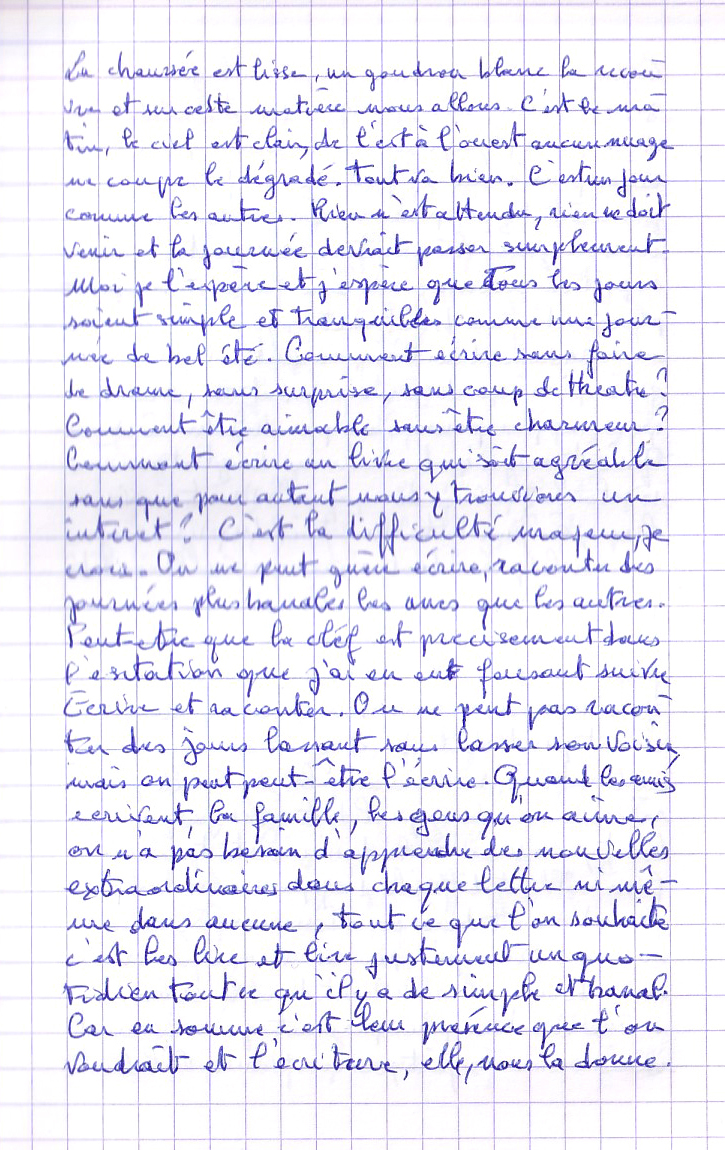 La chaussée est lisse, un goudron blanc la recou
vre et sur cette matière nous allons. C'est le ma-
tin, le ciel est clair, de l'est à l'ouest aucun nuage
ne coupe le dégradé. Tout va bien. C'est un jour
comme les autres. Rien n'est attendu, rien ne doit
venir et la journée devrait passer simplement.
Moi je l'espère et j'espère que tous les jours
soient simple et tranquilles comme une jour-
née de bel été. Comment écrire sans faire
de drame, sans surprise, sans coup de théatre?
Comment être aimable sans être charmeur?
Comment écrire un livre qui soit agréable
sans que pour autant nous y trouvions un
intéret? C'est la difficulté majeur, je
crois. On ne peut qu'en écrire, raconter des
journées plus banales les unes que les autres.
Peut-etre que la cléf est precisement dans
l'esitation que j'ai eu en faisant suivre
Ecrire et raconter. On ne peut pas racon-
ter des jours lassant sans lasser son voisin,
mais on peut peut-être l'écrire. Quand les amis
ecrivent, la famille, les gens qu'on aime,
on n'a pas besoin d'apprendre des nouvelles
extraordinaires dans chaque lettre ni mê-
me dans aucune, tout ce que l'on souhaite
c'est les lire et lire justement un quo-
tidien tout ce qu'il y a de simple et banal.
Car en somme c'est leur présence que l'on
voudrait et l'écriture, elle, nous la donne.